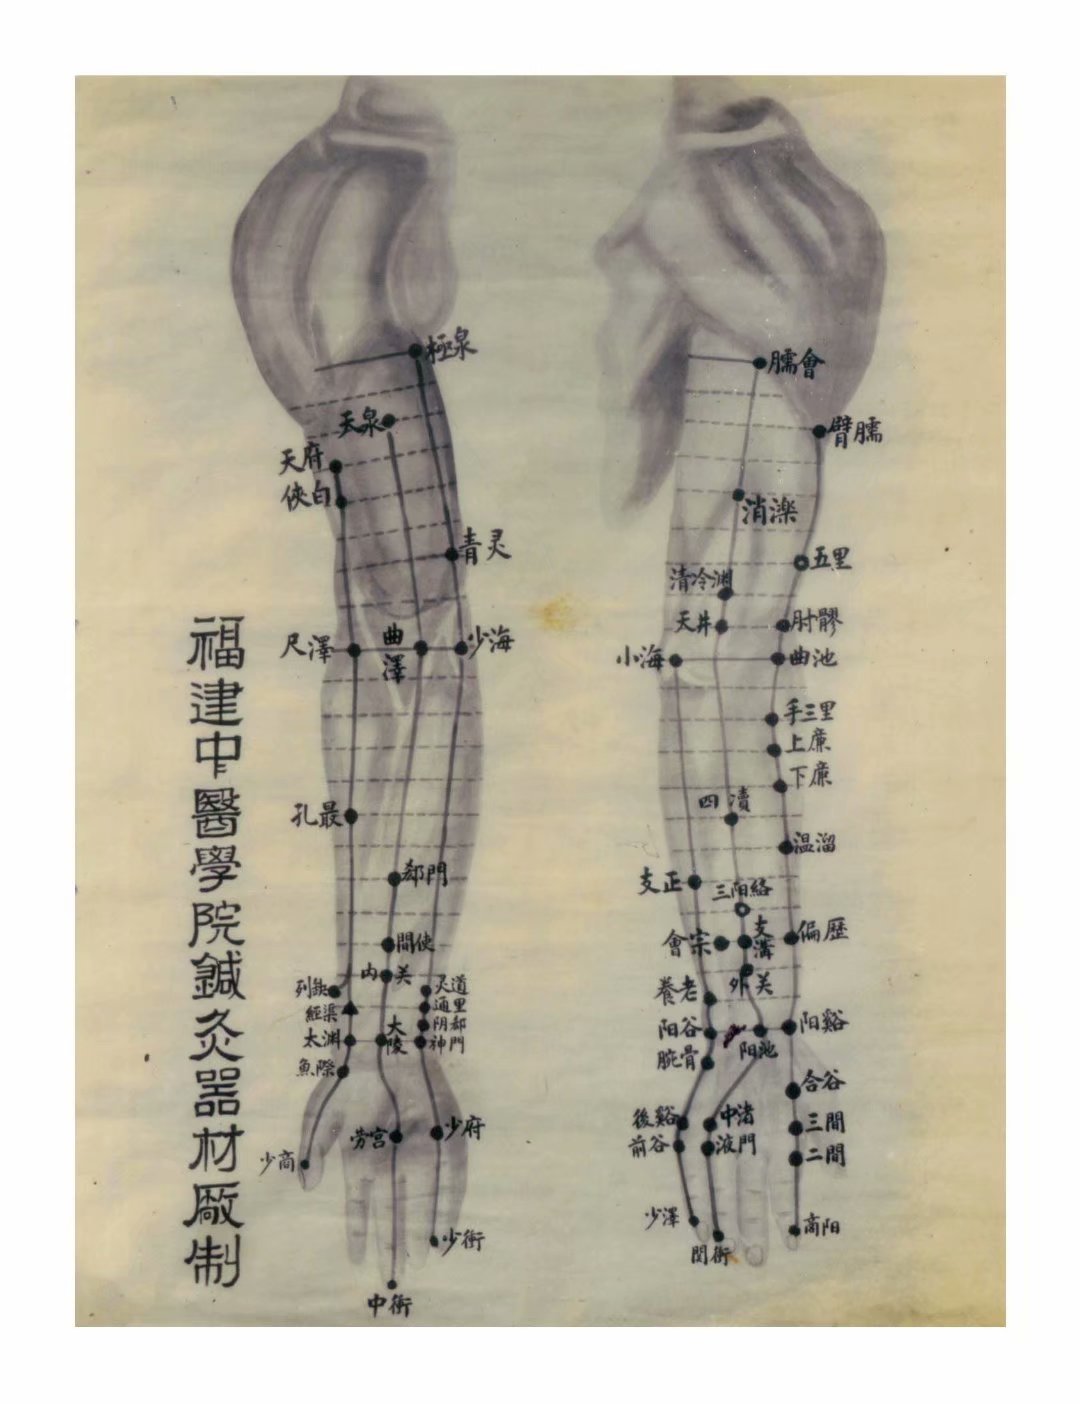 福建中醫學院鍼灸器材厰制
極泉
天泉
天府
俠白
青灵
尺澤
曲澤
少海
孔最
郄門
間使
内关
列缺
經渠
太渊
魚際
大陵
灵道
通里
阴郄
神門
劳宫
少府
少商
少衝
中衝
臑會
臂臑
消濼
五里
清冷渊
天井
肘髎
小海
曲池
手三里
上廉
下廉
四瀆
温溜
支正
三阳絡
會宗
支溝
偏歷
外关
養老
阳谷
阳池
阳谿
腕骨
合谷
後谿
中渚
三間
前谷
液門
二間
少澤
関衝
商阳